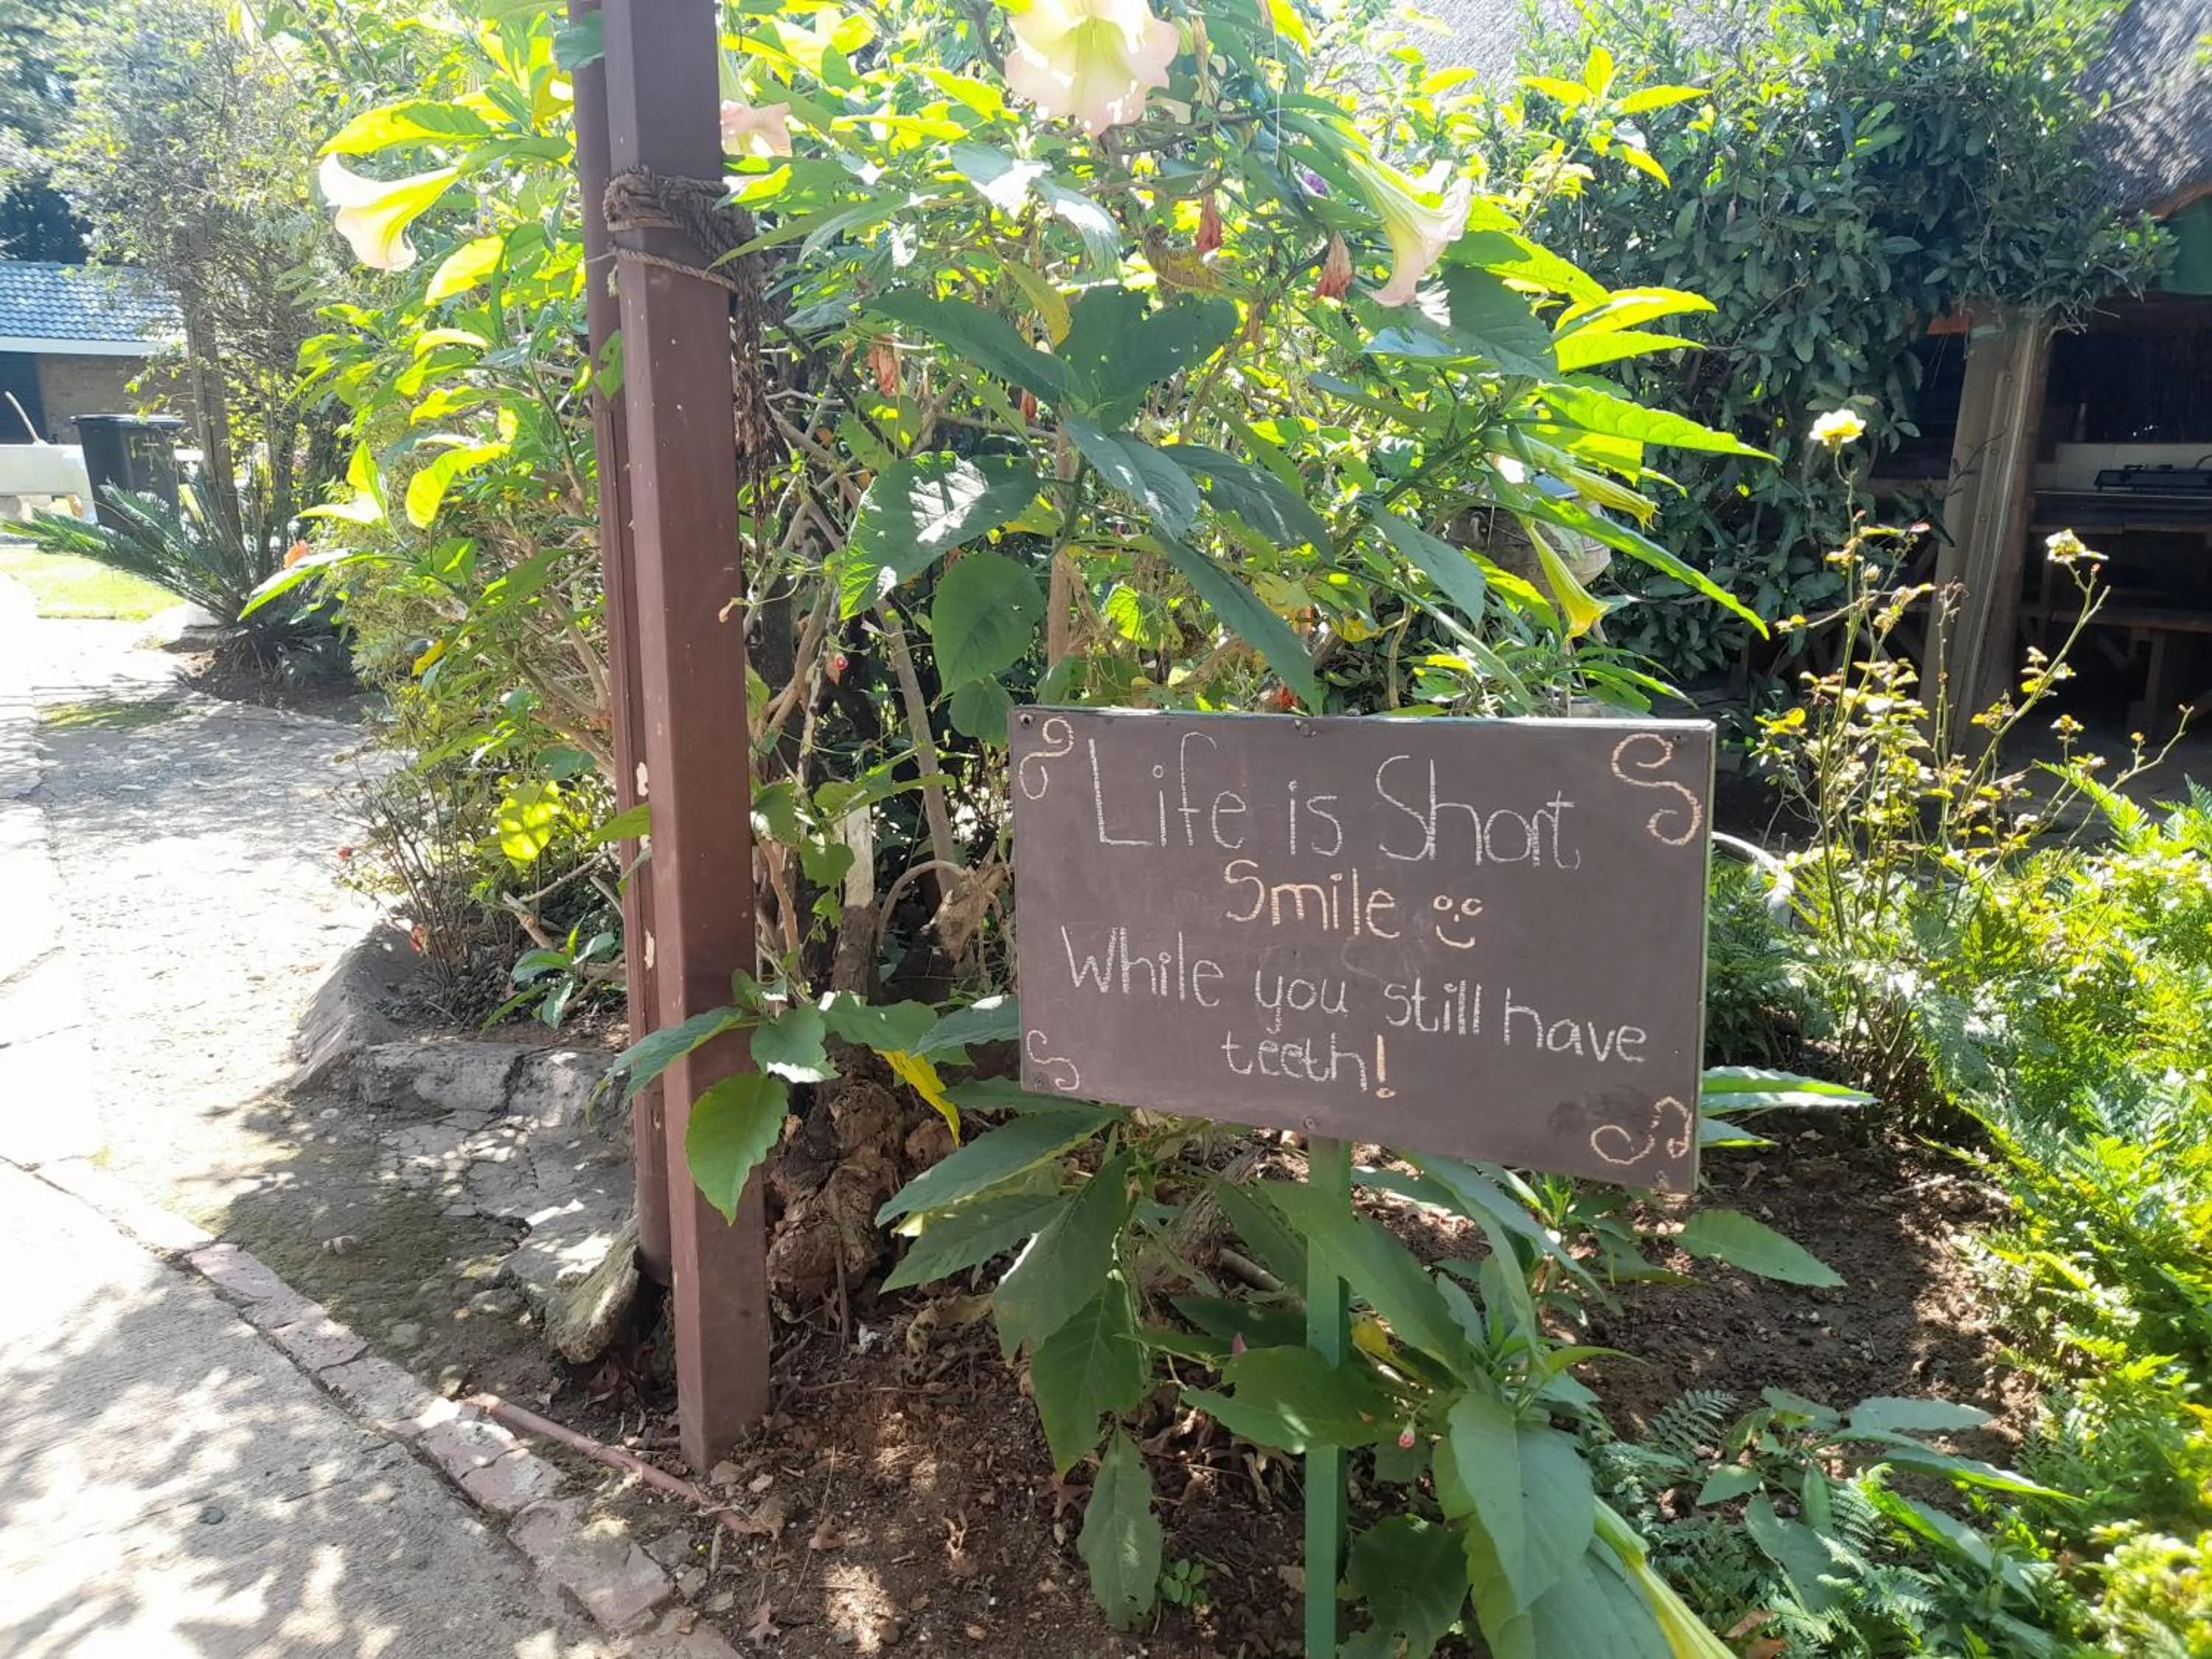 Life is Short
Smile
While you still have
teeth!